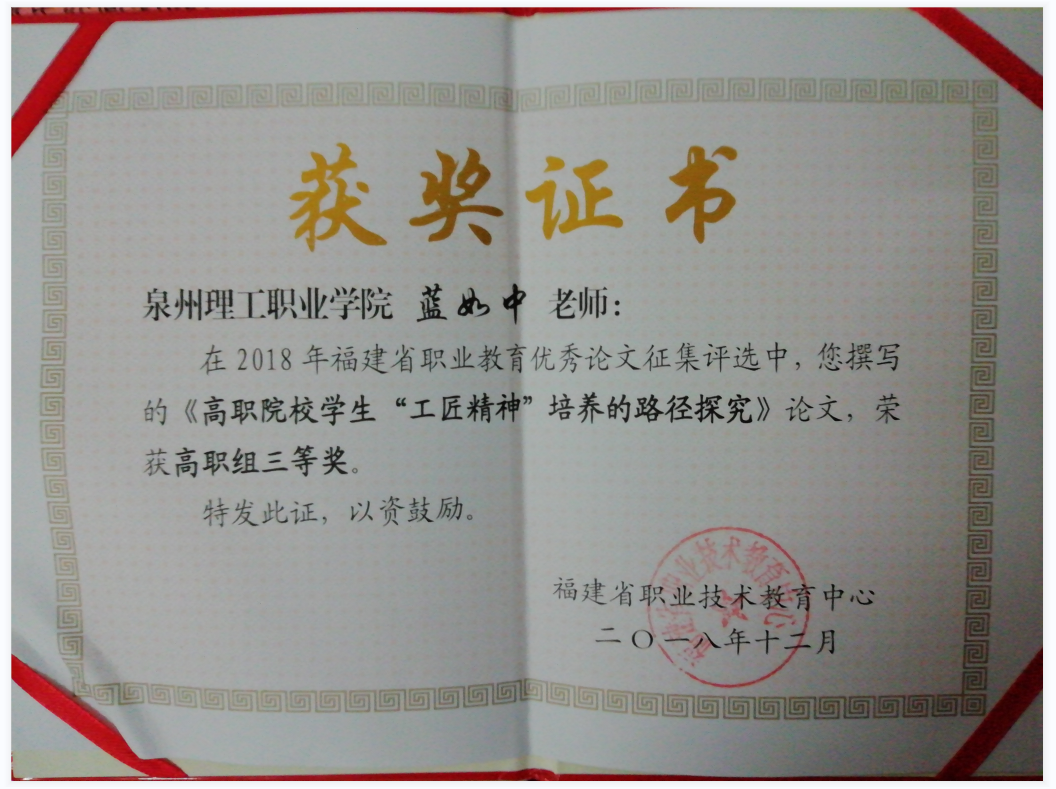 获奖证书
泉州理工职业学院 蓝如中 老师：
在2018年福建省职业教育优秀论文征集评选中，您撰写
的《高职院校学生“工匠精神”培养的路径探究》论文，荣
获高职组三等奖。
特发此证，以资鼓励。
福建省职业技术教育中心
二〇一八年十二月
福建省职业技术教育中心